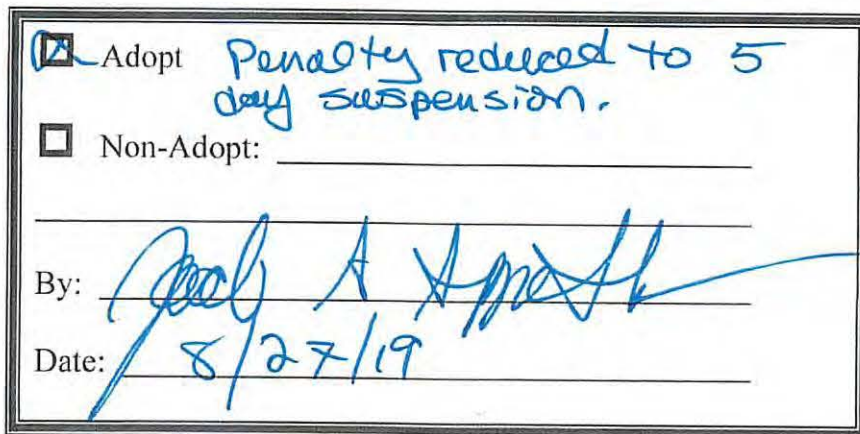 Adopt Penalty reduced to 5
day suspension.
Non-Adopt:
By:
Date: 8/27/19